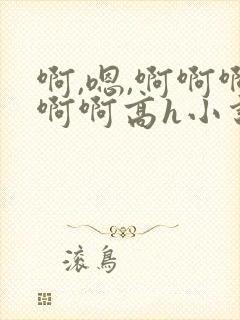 啊,嗯,啊啊啊
啊啊高h小
滚鸟